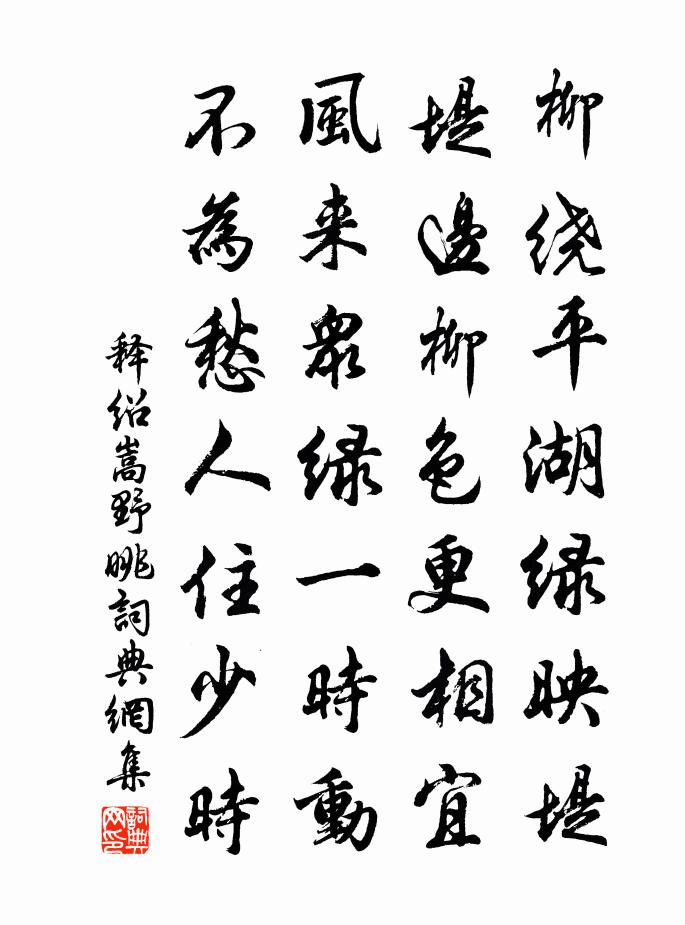 柳绕平湖緑映堤
堤邊柳色更相宜
風来眾緑一時動
不為愁人住少時
释绍嵩野眺詞典網集
詞典网印